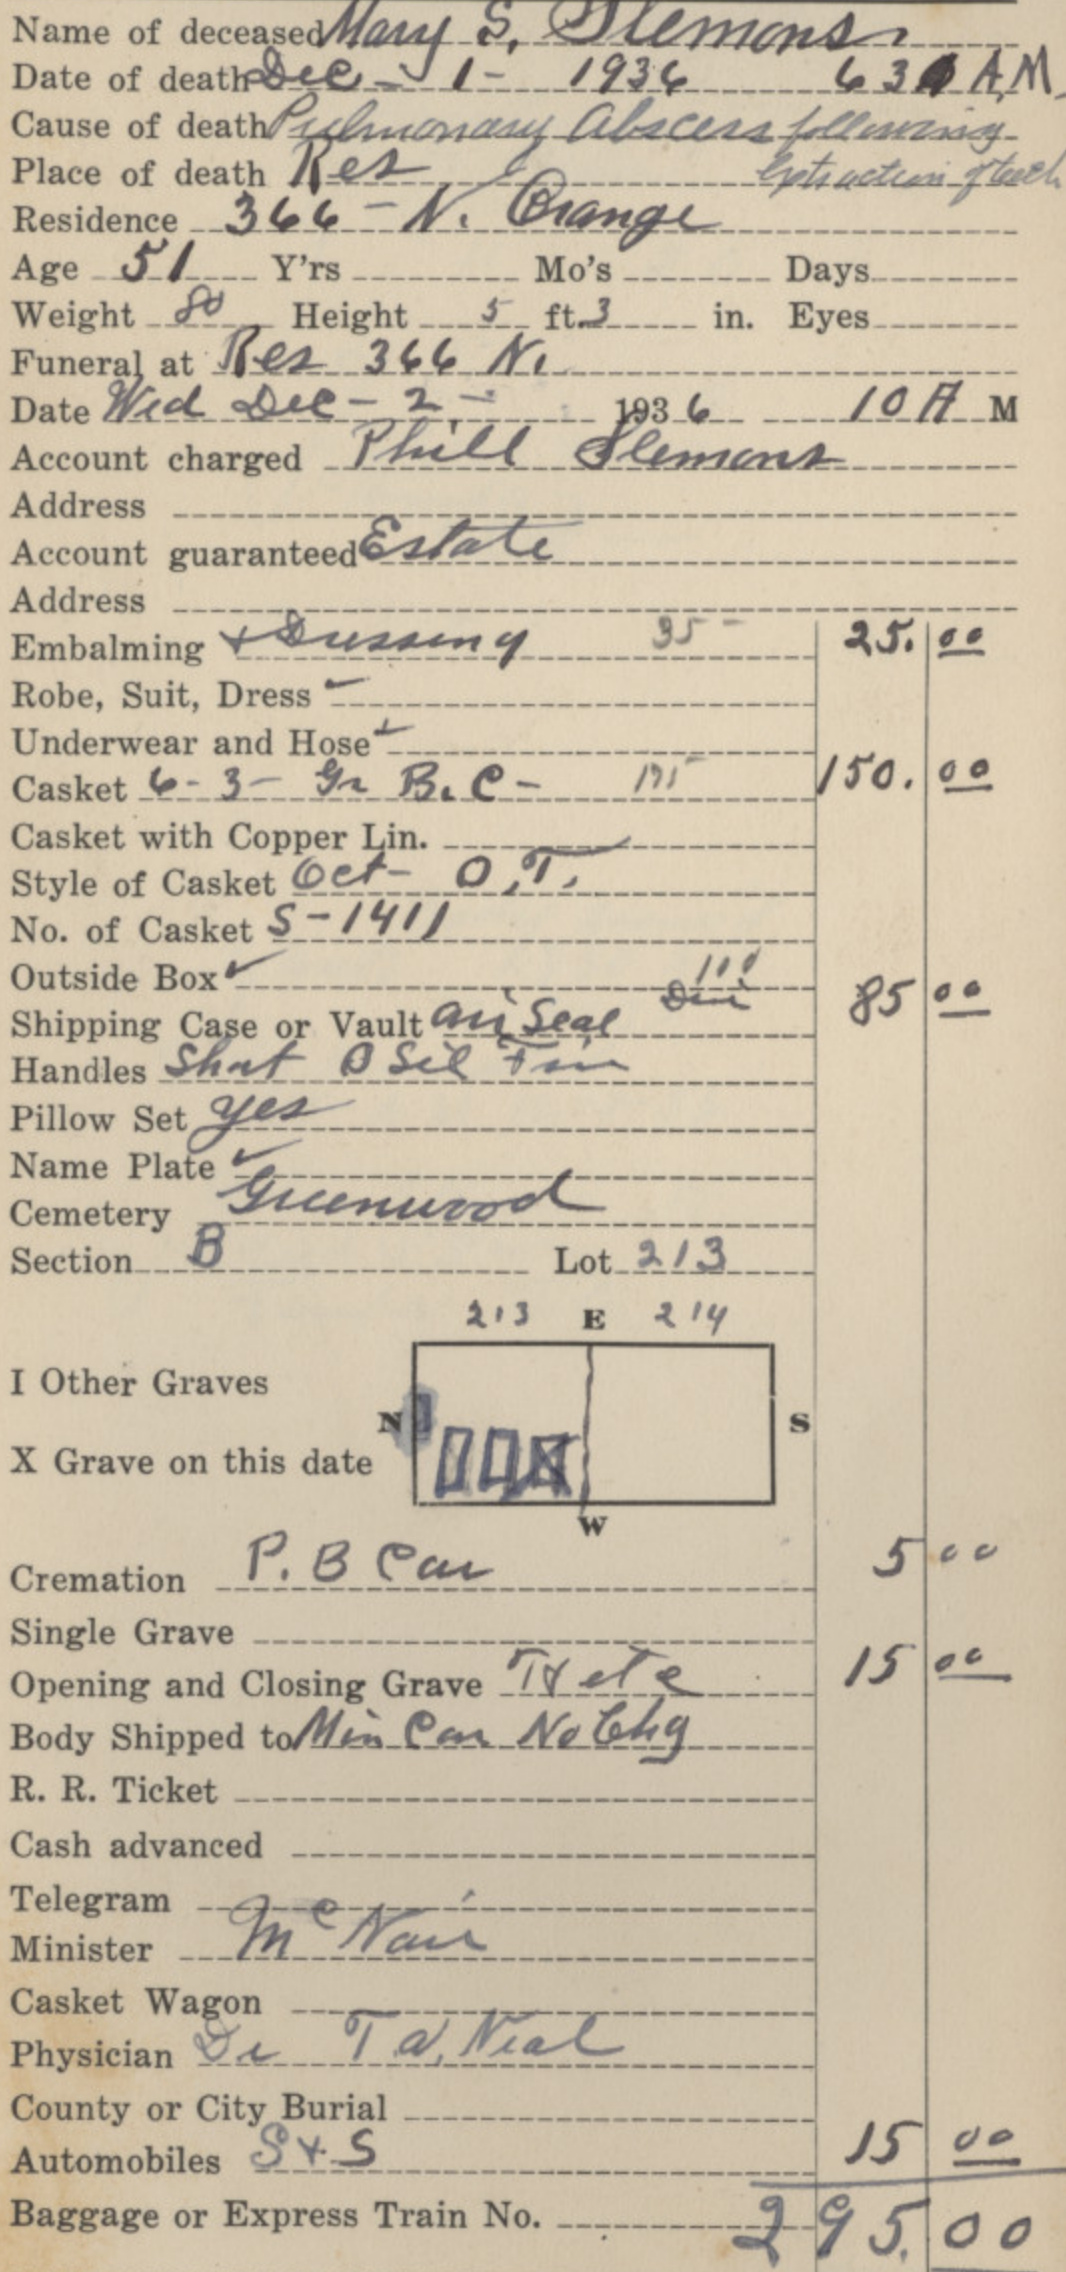 Name of deceased Mary S. Slemons
Date of death Dec - 1 - 1936 630 A.M.
Cause of death Pulmonary Abscess following
extraction of teeth
Place of death Res
Residence 366 - N. Orange
Age 51 Y'rs Mo's Days
Weight 80 Height 5 ft. 3 in. Eyes
Funeral at Res 366 N.
Date Wed Dec - 2 - 1936 10 A M
Account charged Phill Slemons
Address
Account guaranteed Estate
Address
Embalming + Dressing 35 - 25. 00
Robe, Suit, Dress
Underwear and Hose
Casket 6-3- Gr B. C - 150. 00
Casket with Copper Lin.
Style of Casket Oct - O.T.
No. of Casket S-1411
Outside Box ✓ 100
Shipping Case or Vault Air Seal 85 00
Handles Short B Sil Fin
Pillow Set yes
Name Plate ✓
Cemetery Greenwood
Section B Lot 213
213 E 214
I Other Graves
N S
X Grave on this date
W
Cremation P. B Car 5 00
Single Grave
Opening and Closing Grave T & etc 15 00
Body Shipped to Min Car No Chg
R. R. Ticket
Cash advanced
Telegram
Minister McNair
Casket Wagon
Physician Dr T.A. Neal
County or City Burial
Automobiles S & S 15 00
Baggage or Express Train No. 295.00